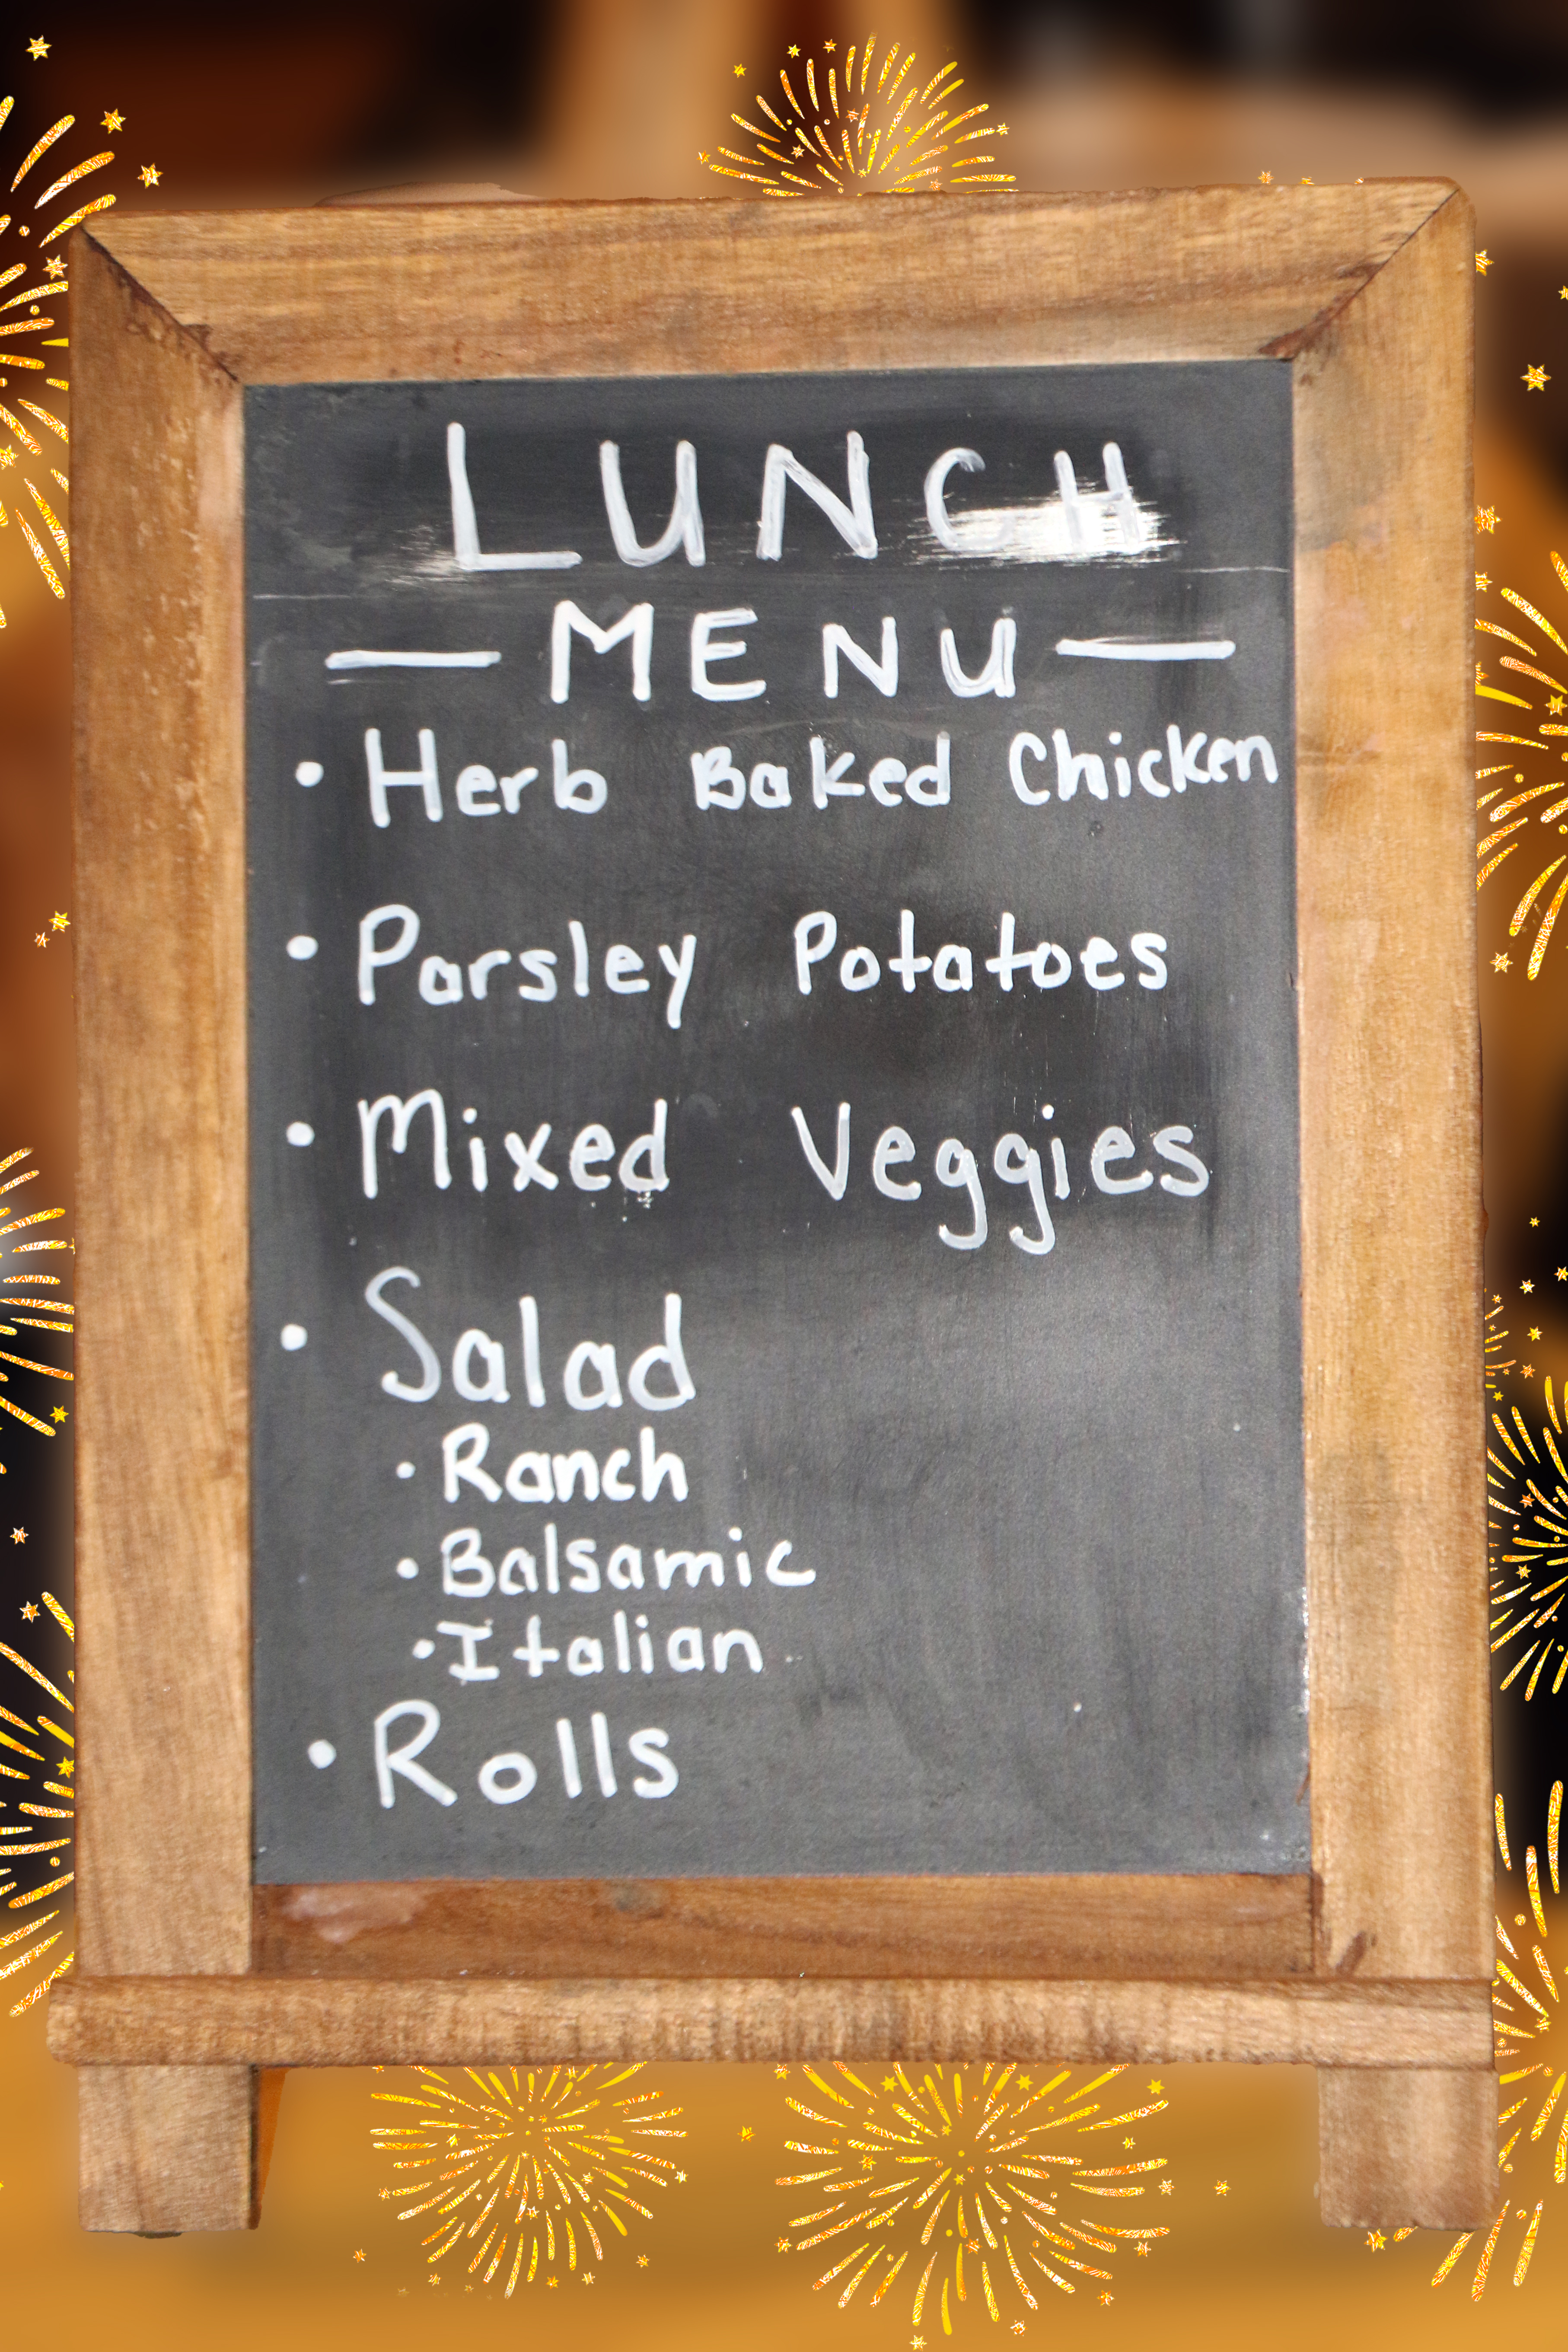 LUNCH
— MENU —
• Herb Baked Chicken
• Parsley Potatoes
• Mixed Veggies
• Salad
• Ranch
• Balsamic
• Italian
• Rolls